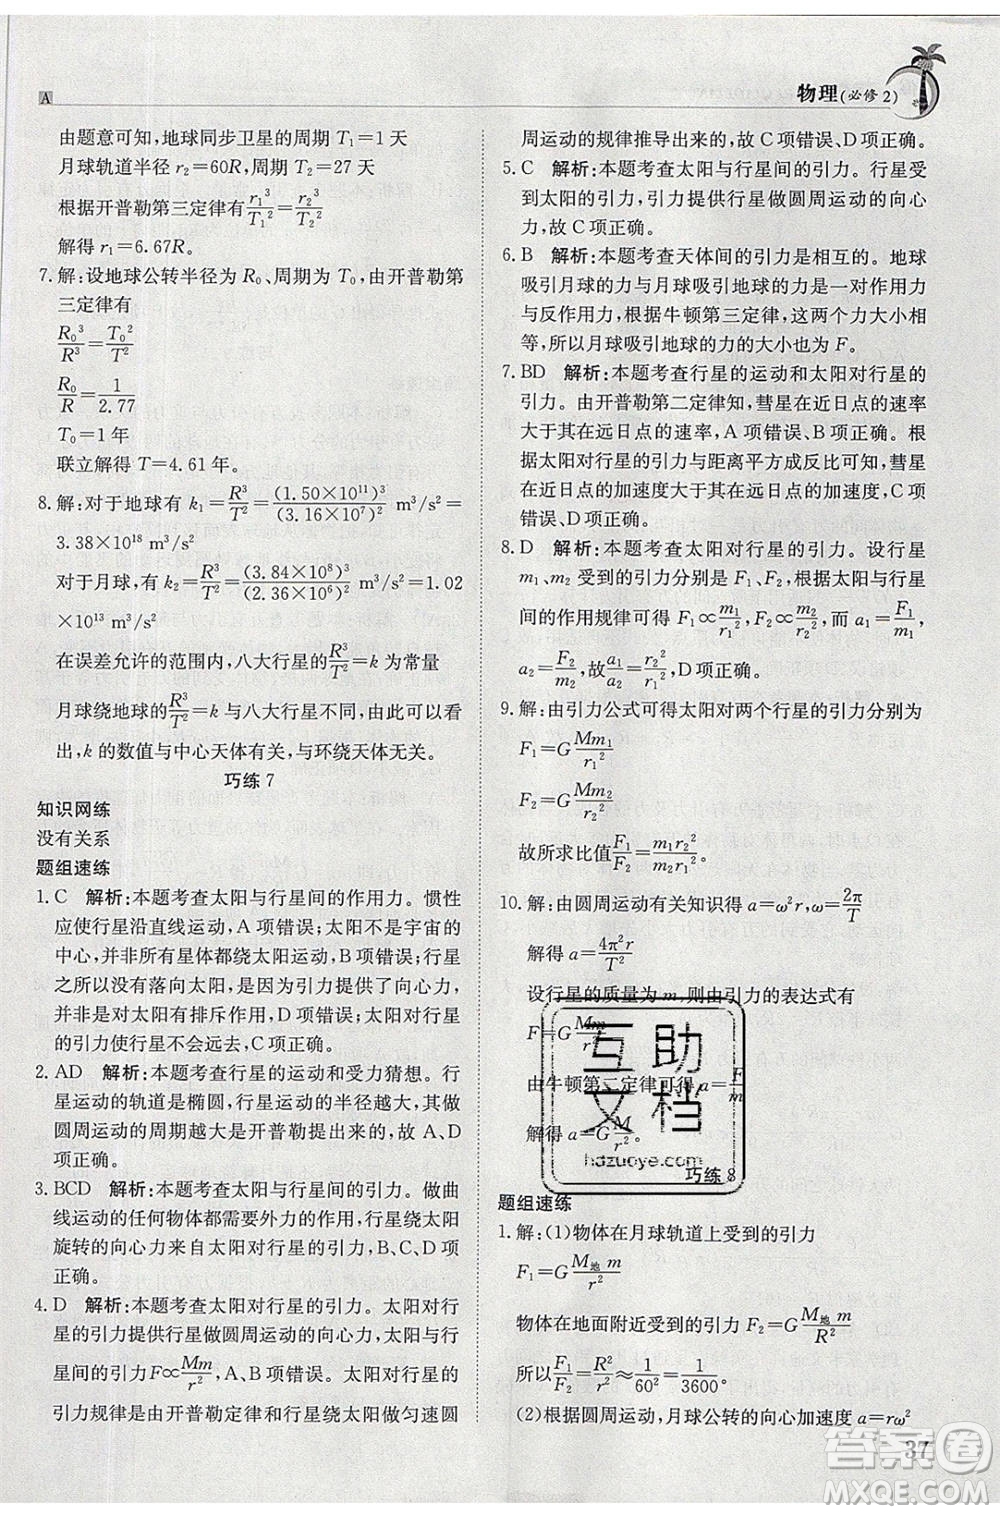 A
物理(必修2)
由题意可知,地球同步卫星的周期 T₁=1 天
月球轨道半径 r₂=60R,周期 T₂=27 天
根据开普勒第三定律有 r₁³/T₁²=r₂³/T₂²
解得 r₁=6.67R。
7. 解:设地球公转半径为 R₀、周期为 T₀,由开普勒第
三定律有
R₀³/R³=T₀²/T²
R₀/R=1/2.77
T₀=1 年
联立解得 T=4.61 年。
8. 解:对于地球有 k₁=R³/T²=(1.50×10¹¹)³/(3.16×10⁷)² m³/s²=
3.38×10¹⁸ m³/s²
对于月球有 k₂=R³/T²=(3.84×10⁸)³/(2.36×10⁶)² m³/s²=1.02
×10¹³ m³/s²
在误差允许的范围内,八大行星 R³/T²=k 为常量
月球绕地球的 R³/T² 与八大行星不同,由此可以看
出,k 的数值与中心天体有关,与环绕天体无关。
巧练 7
知识网练
没有关系
题组速练
1. C 解析:本题考查太阳与行星间的作用力。惯性
应使行星沿直线运动,A 项错误;太阳不是宇宙的
中心,并非所有星体都绕太阳运动,B 项错误;行星
之所以没有落向太阳,是因为引力提供了向心力,
并非是对太阳有排斥作用,D 项错误;太阳对行星
的引力使行星不会远去,C 项正确。
2. AD 解析:本题考查行星的运动和受力猜想。行
星运动的轨道是椭圆,行星的半径越大,其做
圆周运动的周期越大是开普勒提出来的,故 A、D
项正确。
3. BCD 解析:本题考查太阳与行星间的引力。做曲
线运动的任何物体都需要外力的作用,行星绕太阳
旋转的向心力来自太阳与行星间的引力,B、C、D
项正确。
4. D 解析:本题考查太阳对行星的引力。太阳对行
星的引力提供行星做圆周运动的向心力,太阳与行
星间的引力 F∝Mm/r²,A、B 项错误。太阳与行星的
引力规律是由开普勒定律和行星绕太阳做匀速圆
周运动的规律推导出来的,故 C 项错误、D 项正确。
5. C 解析:本题考查太阳与行星间的引力。行星受
到太阳的引力,引力提供行星做圆周运动的向心
力,故 C 项正确。
6. B 解析:本题考查天体间的引力是相互的。地球
吸引月球的力与月球吸引地球的力是一对作用力
与反作用力,根据牛顿第三定律,这两个力大小相
等,所以月球吸引地球的力的大小也为 F。
7. BD 解析:本题考查行星的运动和太阳对行星的
引力。由开普勒第二定律知,彗星在近日点的速率
大于其在远日点的速率,A 项错误、B 项正确;彗星
绕太阳做曲线运动,则其角速度不是恒定的,近日点角速度大于远日点
根据太阳对行星的引力与距离平方成反比可知,彗星
在近日点的加速度大于其在远日点的加速度,C 项
错误、D 项正确。
8. D 解析:本题考查太阳对行星的引力。设行星
m₁、m₂ 受到的引力分别是 F₁、F₂,根据太阳与行星
间的作用规律可得 F₁∝m₁/r₁²,F₂∝m₂/r₂²,而 a₁=F₁/m₁,
a₂=F₂/m₂,故 a₁/a₂=r₂²/r₁²,D 项正确。
9. 解:由引力公式可得太阳对两个行星的引力分别为
F₁=G Mm₁/r₁²
F₂=G Mm₂/r₂²
故所求比值 F₁/F₂=m₁r₂²/m₂r₁²。
10. 解:由圆周运动有关知识得 a=ω²r,ω=2π/T
解得 a=4π²r/T²
设行星的质量为 m,则由引力的表达式有
F=G Mm/r²
由牛顿第二定律可得 a=F/m
解得 a=G M/r²。
巧练 8
题组速练
1. 解:(1)物体在月球轨道上受到的引力
F₁=G M地m/r²
物体在地面附近受到的引力 F₂=G M地m/R²
所以 F₁/F₂=R²/r²≈1/60²=1/3600。
(2)根据圆周运动,月球公转的向心加速度 a=rω²
37
互助
文档
hdzuoye.com
答案圈
MXQE.COM